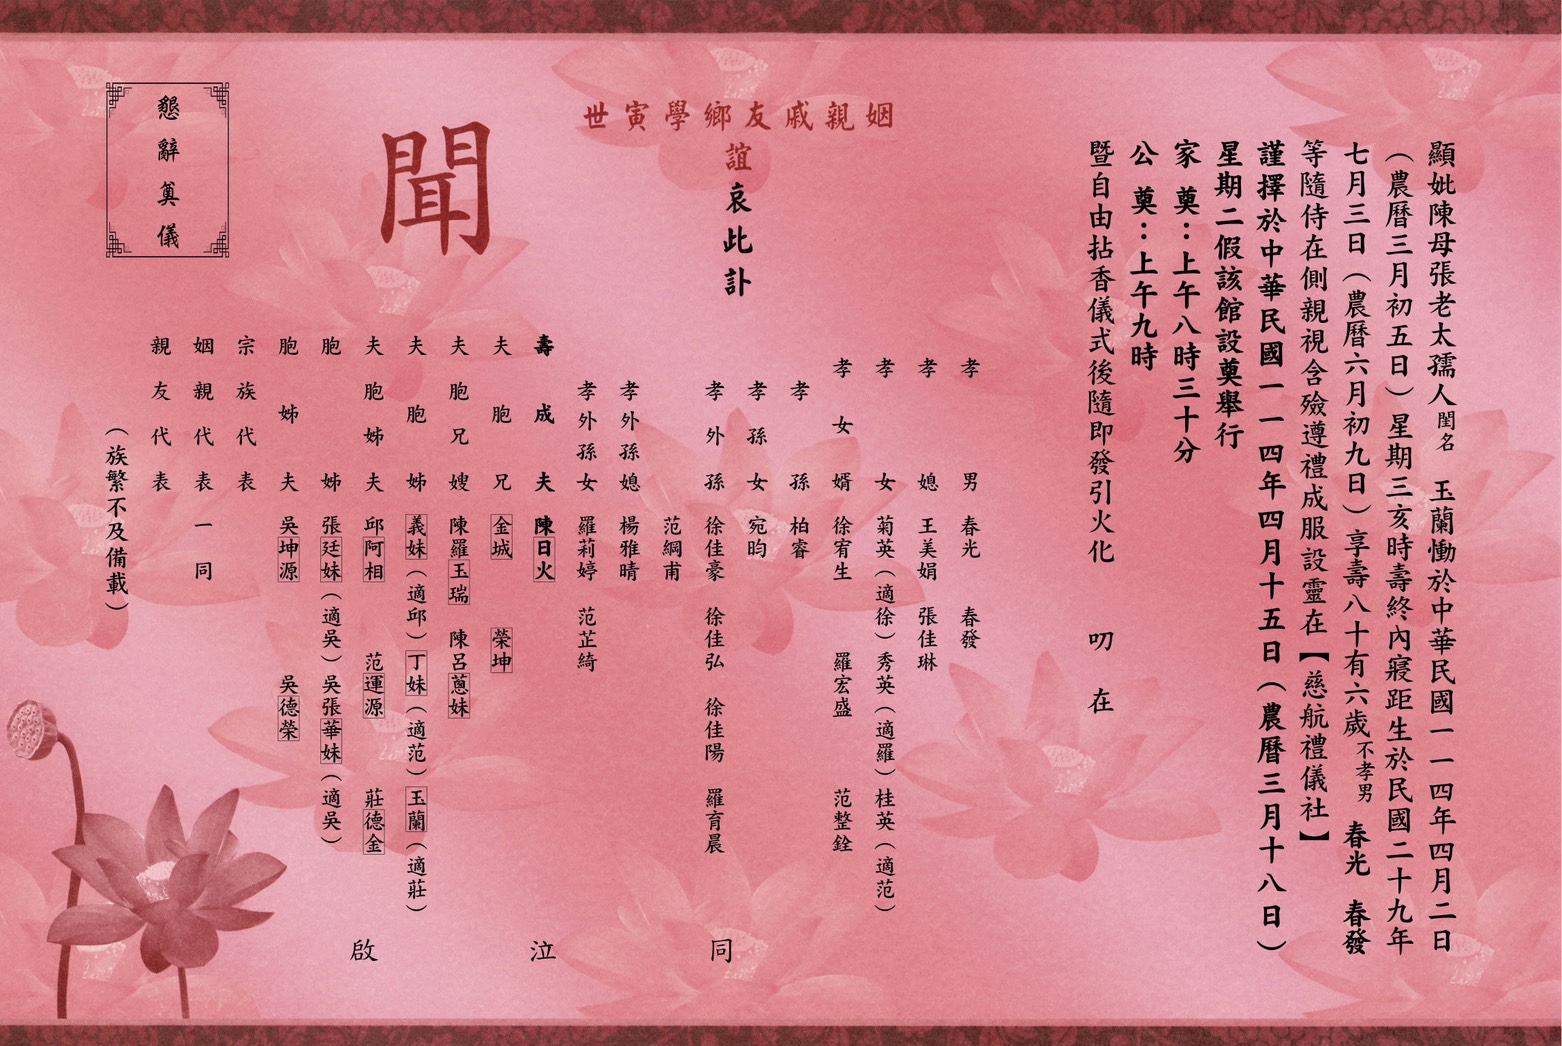 顯妣陳母張老太孺人閨名 玉蘭慟於中華民國一一四年四月二日
（農曆三月初五日）星期三亥時壽終內寢距生於民國二十九年
七月三日（農曆六月初九日）享壽八十有六歲不孝男 春光 春發
等隨侍在側親視含殮遵禮成服設靈在【慈航禮儀社】
謹擇於中華民國一一四年四月十五日（農曆三月十八日）
星期二假該館設奠舉行
家 奠：上午八時三十分
公 奠：上午九時
暨自由拈香儀式後隨即發引火化 叨 在
姻親戚友鄉學寅世
誼哀此訃
聞
孝男 春光 春發
孝媳 王美娟 張佳琳
孝女 菊英（適徐）秀英（適羅）桂英（適范）
孝女婿 徐宥生 羅宏盛 范整銓
孝孫 柏睿
孝孫女 宛昀
孝外孫 徐佳豪 徐佳弘 徐佳陽 羅育晨
范綱甫
孝外孫媳 楊雅晴
孝外孫女 羅莉婷 范芷綺
壽成夫 陳日火
夫胞兄 金城 榮坤
夫胞兄嫂 陳羅玉瑞 陳呂蔥妹
夫胞姊 義妹（適邱）丁妹（適范）玉蘭（適莊）
夫胞姊夫 邱阿相 范運源 莊德金
胞姊 張廷妹（適吳）吳張華妹（適吳）
胞姊夫 吳坤源 吳德榮
宗族代表
姻親代表一同
親友代表
（族繁不及備載）
同泣啟
懇辭奠儀